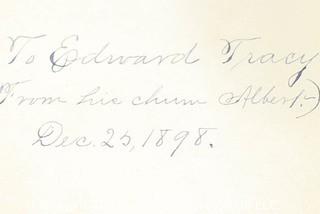 To Edward Tracy
From his chum Albert.)
Dec. 25, 1898.